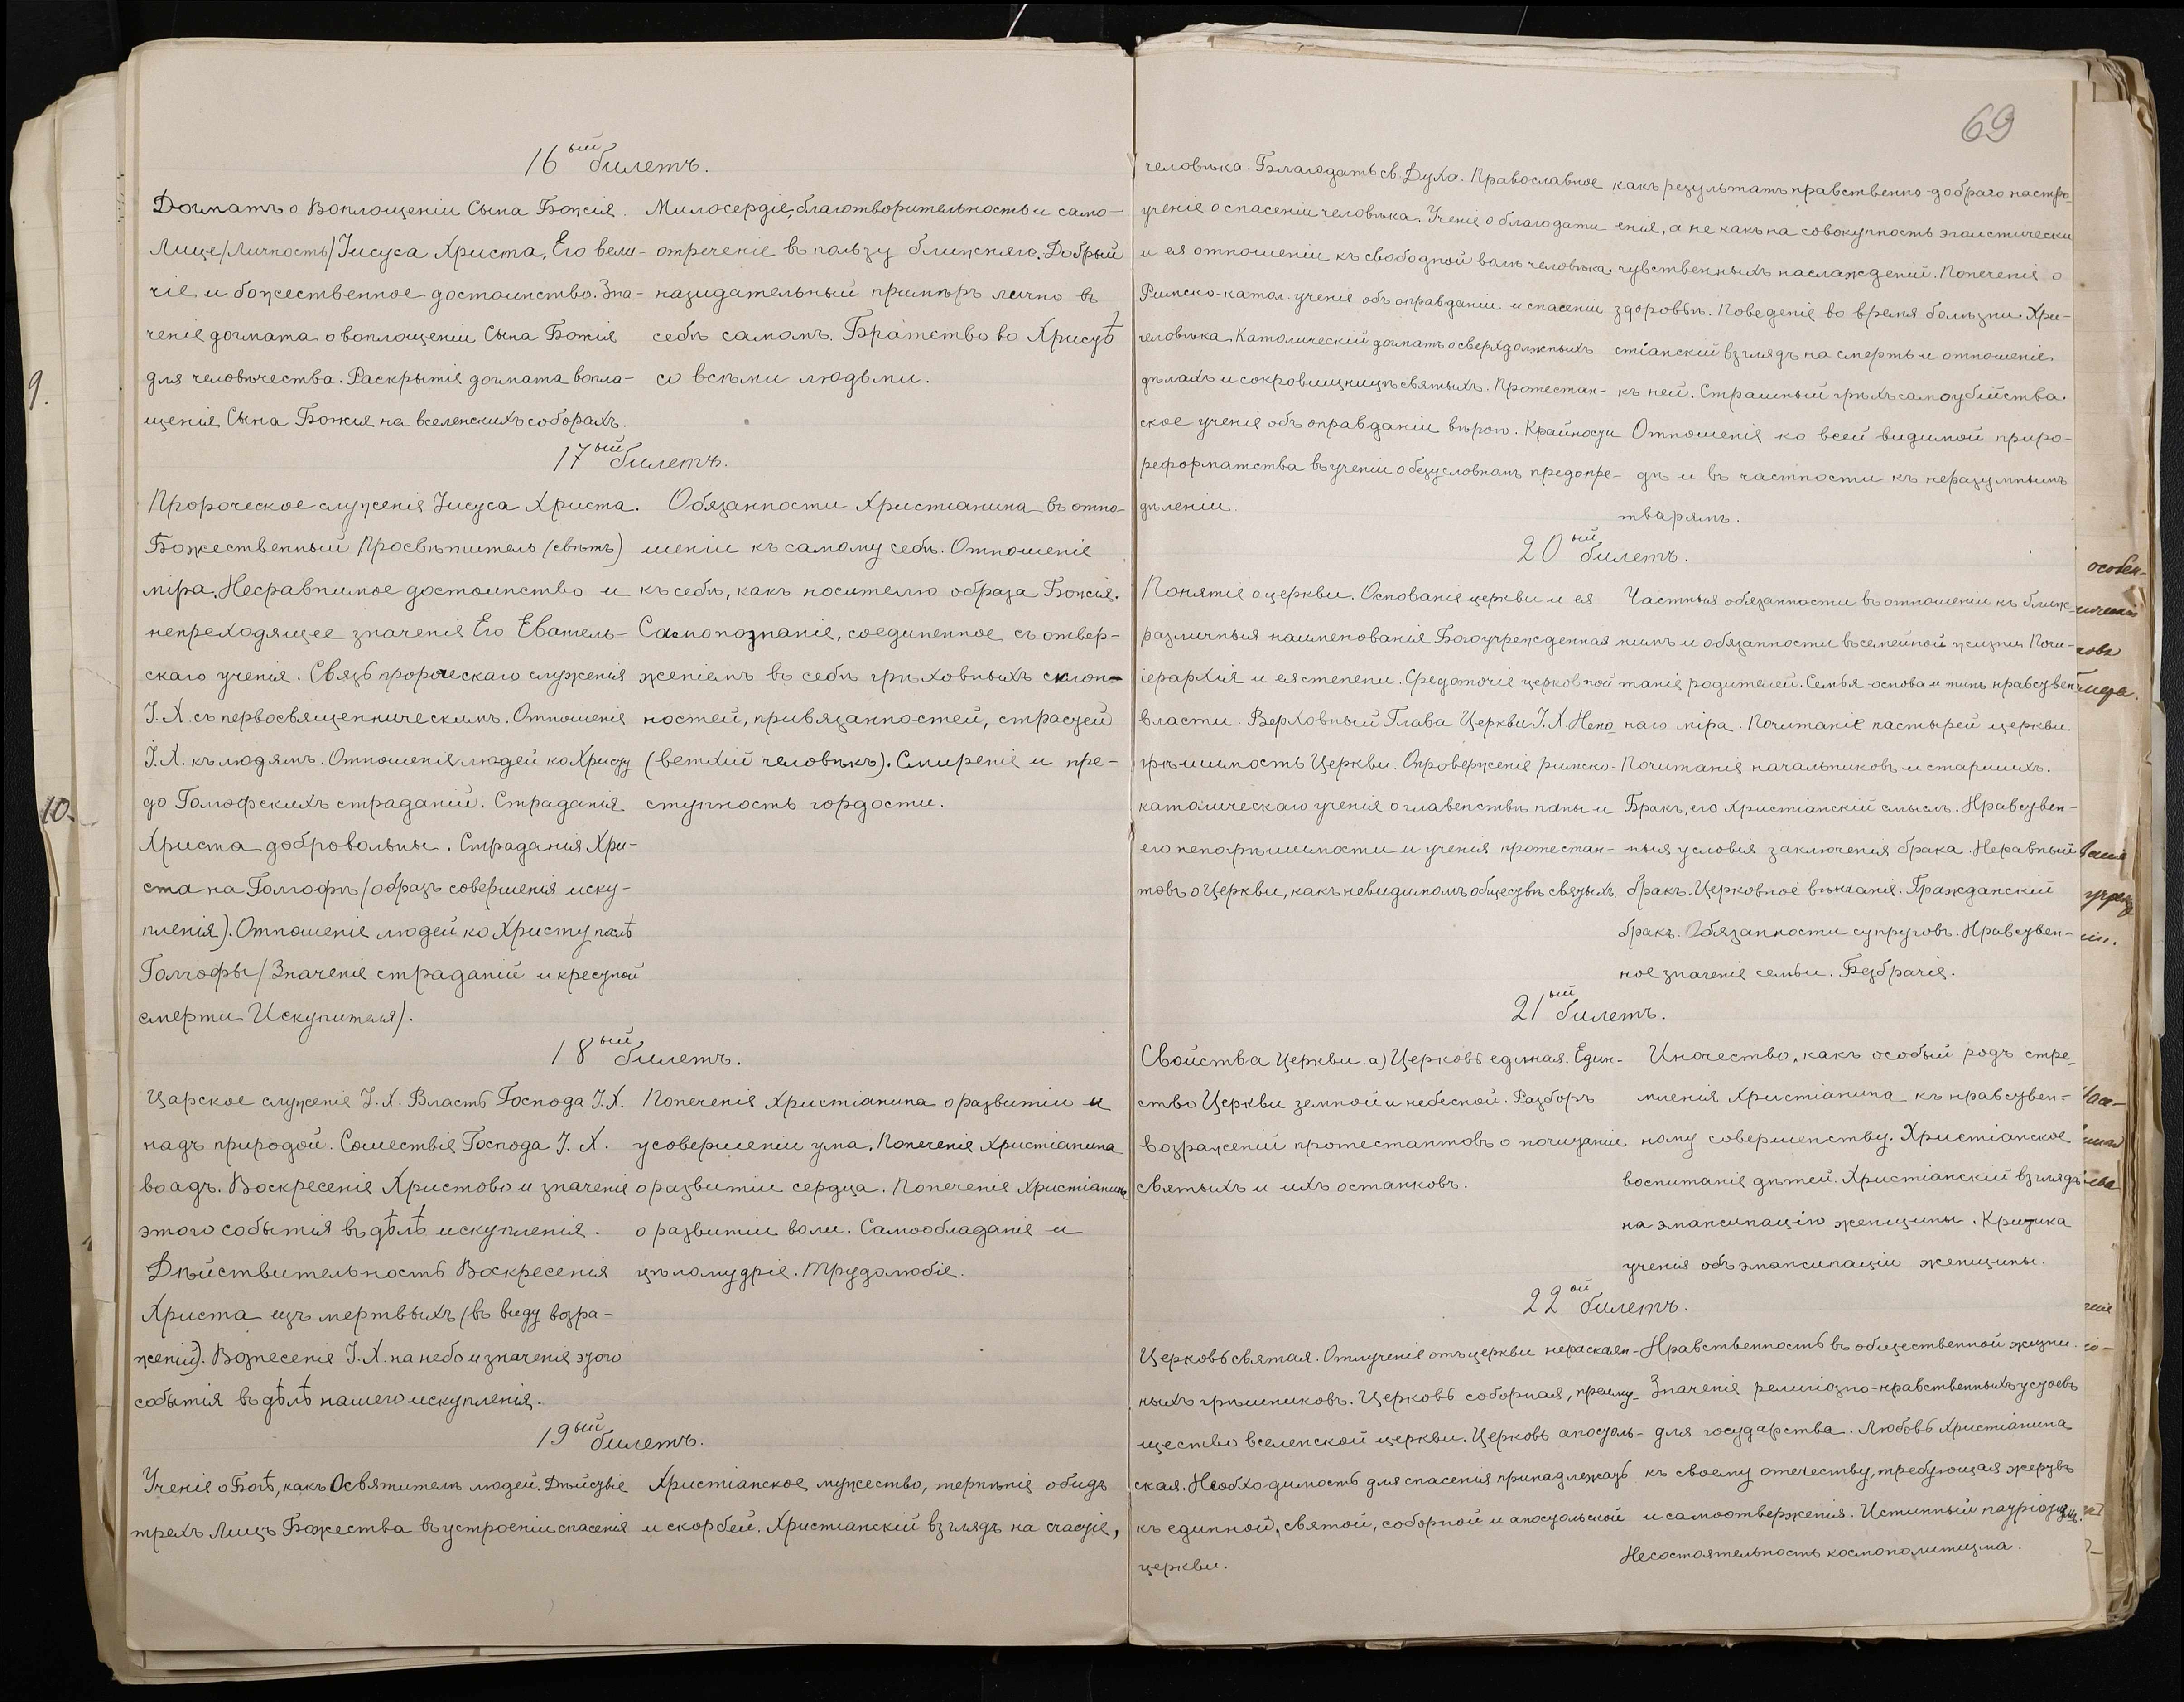 16ый билетъ.
Догматъ о Воплощеніи Сына Божія.
Лице /Личность/ Іисуса Христа, Его вели-
чіе и божественное достоинство. Зна-
ченіе догмата о воплощеніи Сына Божія
для человѣчества. Раскрытіе догмата вопло-
щенія Сына Божія на вселенскихъ соборахъ.
Милосердіе, благотворительность и само-
отреченіе въ пользу ближняго. Добрый
назидательный примѣръ лично въ
себѣ самомъ. Братство во Христѣ
со всѣми людьми.
17ый билетъ.
Пророческое служеніе Іисуса Христа.
Божественный Просвѣтитель (свѣтъ)
міра. Несравнимое достоинство и
непреходящее значеніе Его Евангель-
скаго ученія. Связь пророческаго служенія
І. Х. съ первосвященническимъ. Отношенія
І. Х. къ людямъ. Отношенія людей ко Христу
до Голгофскихъ страданій. Страданія
Христа добровольны. Страданія Хри-
ста на Голгофѣ /образъ совершенія иску-
пленія). Отношеніе людей ко Христу послѣ
Голгофы /Значеніе страданій и крестной
смерти Искупителя/.
Обязанности Христіанина въ отно-
шеніи къ самому себѣ. Отношеніе
къ себѣ, какъ носителю образа Божія.
Самопознаніе, соединенное съ отвер-
женіемъ въ себѣ грѣховныхъ склон-
ностей, привязанностей, страстей
(ветхій человѣкъ). Смиреніе и пре-
ступность гордости.
18ый билетъ.
Царское служеніе І. Х. Власть Господа І. Х.
надъ природой. Сошествіе Господа І. Х.
во адъ. Воскресеніе Христово и значеніе
этого событія въ дѣлѣ искупленія.
Дѣйствительность Воскресенія
Христа изъ мертвыхъ /въ виду возра-
женій). Вознесеніе І. Х. на небо и значеніе этого
событія въ дѣлѣ нашего искупленія.
Попеченія Христіанина о развитіи и
усовершеніи ума. Попеченія Христіанина
о развитіи сердца. Попеченія Христіанина
о развитіи воли. Самообладаніе и
цѣломудріе. Трудолюбіе.
19ый билетъ.
Ученіе о Богѣ, какъ Освятителѣ людей. Дѣйствіе
трехъ Лицъ Божества въ устроеніи спасенія
Христіанское мужество, терпѣніе обидъ
и скорбей. Христіанскій взглядъ на счастіе,
9.
10.
69
человѣка. Благодать св. Духа. Православное
ученіе о спасеніи человѣка. Ученіе о благодати
и ея отношеніи къ свободной волѣ человѣка.
Римско-катол. ученіе объ оправданіи и спасеніи
человѣка. Католическій догматъ о сверхдолжныхъ
дѣлахъ и сокровищницѣ святыхъ. Протестан-
ское ученіе объ оправданіи вѣрою. Крайности
реформатства въ ученіи о безусловномъ предопре-
дѣленіи.
какъ результатъ нравственно-добраго настро-
енія, а не какъ на совокупность эгоистически
чувственныхъ наслажденій. Попеченія о
здоровьѣ. Поведеніе во время болѣзни. Хри-
стіанскій взглядъ на смерть и отношеніе
къ ней. Страшный грѣхъ самоубійства.
Отношенія ко всей видимой приро-
дѣ и въ частности къ неразумнымъ
тварямъ.
20ый билетъ.
Понятіе о церкви. Основаніе церкви и ея
различныя наименованія. Богоучрежденная
іерархія и ея степени. Средоточіе церковной
власти. Верховный Глава Церкви І. Х. Непо-
грѣшимость Церкви. Опроверженія римско-
католическаго ученія о главенствѣ папы и
его непогрѣшимости и ученія протестан-
товъ о Церкви, какъ невидимомъ обществѣ святыхъ.
Частныя обязанности въ отношеніи къ ближ-
нимъ и обязанности въ семейной жизни. Почи-
таніе родителей. Семья-основа и типъ нравствен-
наго міра. Почитаніе пастырей церкви.
Почитанія начальниковъ и старшихъ.
Бракъ, его христіанскій смыслъ. Нравствен-
ныя условія заключенія брака. Неравный
бракъ. Церковное вѣнчаніе. Гражданскій
бракъ. Обязанности супруговъ. Нравствен-
ное значеніе семьи. Безбрачіе.
21ый билетъ.
Свойства Церкви. а) Церковь единая. Един-
ство Церкви земной и небесной. Разборъ
возраженій протестантовъ о почитаніи
святыхъ и ихъ останковъ.
Иночество, какъ особый родъ стре-
мленія Христіанина къ нравствен-
ному совершенству. Христіанское
воспитаніе дѣтей. Христіанскій взглядъ
на эмансипацію женщины. Критика
ученія объ эмансипаціи женщины.
22ой билетъ.
Церковь святая. Отлученіе отъ церкви нераскаян-
ныхъ грѣшниковъ. Церковь соборная, преиму-
щество вселенской церкви. Церковь апостоль-
ская. Необходимость для спасенія принадлежать
къ единной, святой, соборной и апостольской
церкви.
Нравственность въ общественной жизни.
Значенія религіозно-нравственныхъ устоевъ
для государства. Любовь Христіанина
къ своему отечеству, требующая жертвъ
и самоотверженія. Истинный патріотизмъ.
Несостоятельность космополитизма.
особен-